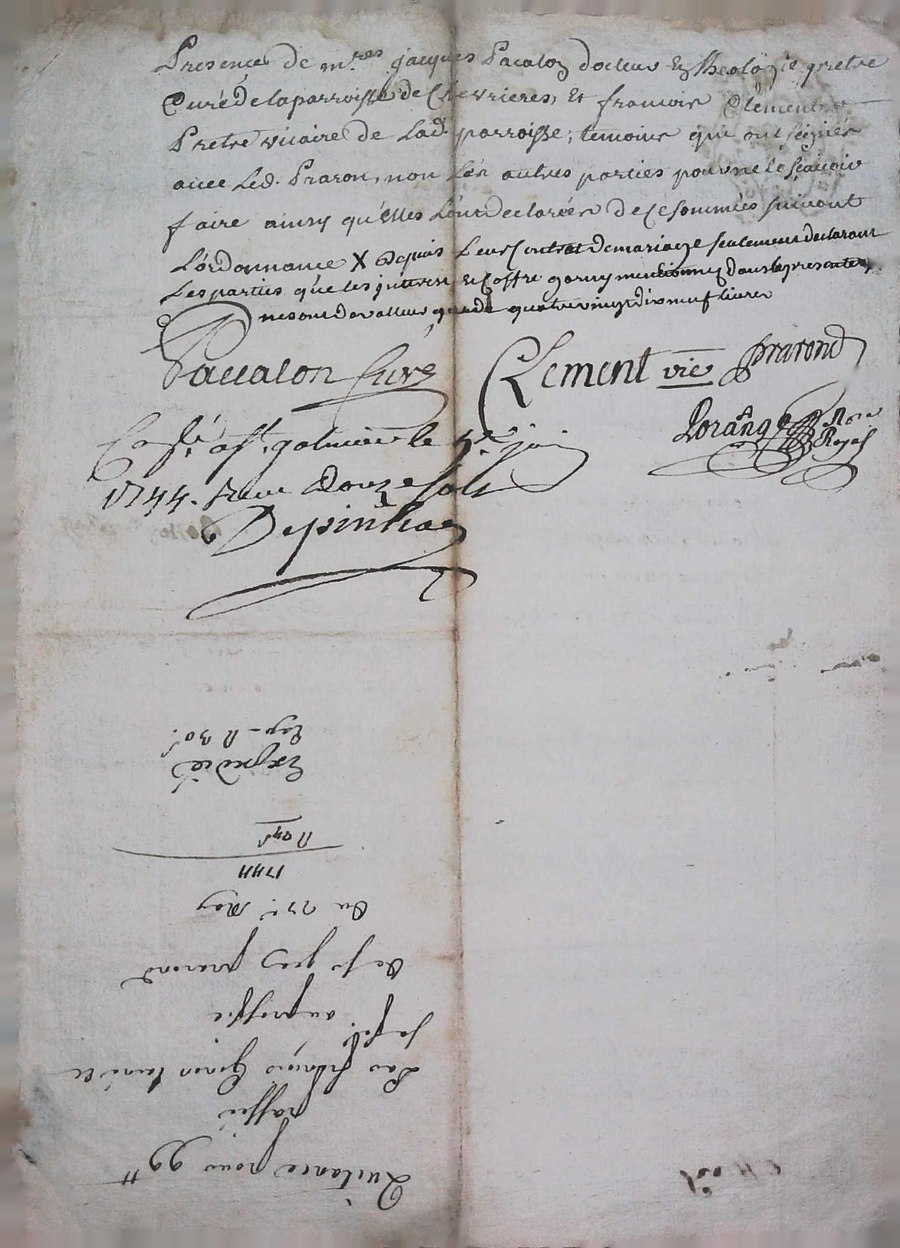 Presence de m.res jacques Pacalon docteur En theologie pretre
Curé de la parroisse de Chevrieres, Et francois Clement
Pretre vicaire de Lad. parroisse, temoins qui ont signés
avec Led. Praron, non Les autres parties pour ne le sçavoir
faire ainsy qu'elles L'ont declarées de ce sommées suivant
L'ordonnance X depuis Leur Contrat de mariage seulement declarant
Les parties que les coffre garny mentionnés dans les presentes
ne sont de valleur que de quatre vingt dix neuf livres
Paccalon Curé
Clement vic
prarond
Dorange No.re Royal
Con.lé à s.t galmier le 5.e
1744. Reçu Douze sols
Depinhac
Quitance pour 99tt
passée
Par françois
sa f.e au proffit
De jean prarond
Du 27.e May
1744
R
Expedié
R 30s